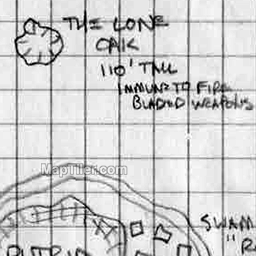 THE LONE
OAK
110' TALL
IMMUNE TO FIRE
BLADED WEAPONS
Mapitler.com
SWAM
"R